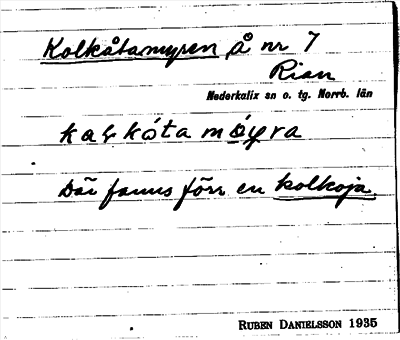 Kolkåtamyren, å nr 7
Rian
Nederkalix sn o. tg. Norrb. län
Där fanns förr en kolkoja.
RUBEN DANIELSSON 1935